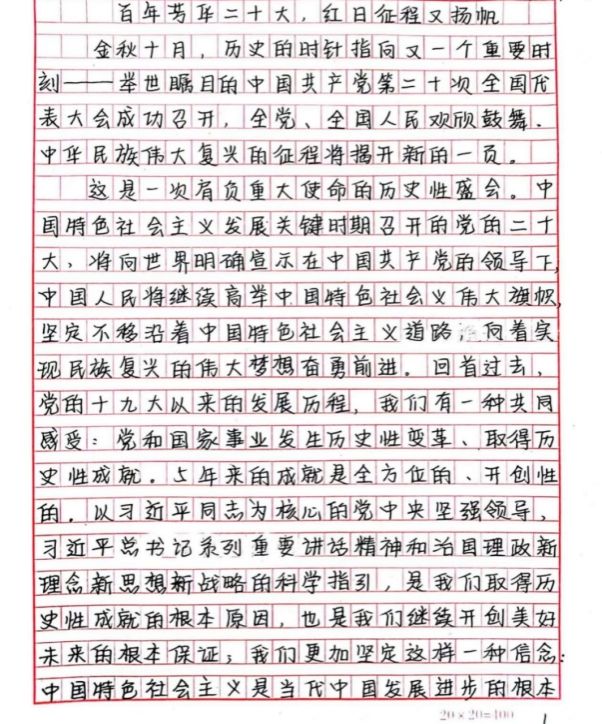 百年芳华二十大，红日征程又扬帆
金秋十月，历史的时针指向又一个重要时
刻——举世瞩目的中国共产党第二十次全国代
表大会成功召开，全党、全国人民欢欣鼓舞．
中华民族伟大复兴的征程将揭开新的一页。
这是一次肩负重大使命的历史性盛会。中
国特色社会主义发展关键时期召开的党的二十
大，将向世界明确宣示在中国共产党的领导下，
中国人民将继续高举中国特色社会义伟大旗帜，
坚定不移沿着中国特色社会主义道路，向着实
现民族复兴的伟大梦想奋勇前进。回首过去，
党的十九大以来的发展历程，我们有一种共同
感受：党和国家事业发生历史性变革、取得历
史性成就．5年来的成就是全方位的、开创性
的．以习近平同志为核心的党中央坚强领导，
习近平总书记系列重要讲话精神和治国理政新
理念新思想新战略的科学指引，是我们取得历
史性成就的根本原因，也是我们继续开创美好
未来的根本保证；我们更加坚定这样一种信念：
中国特色社会主义是当代中国发展进步的根本
20×20=400 1